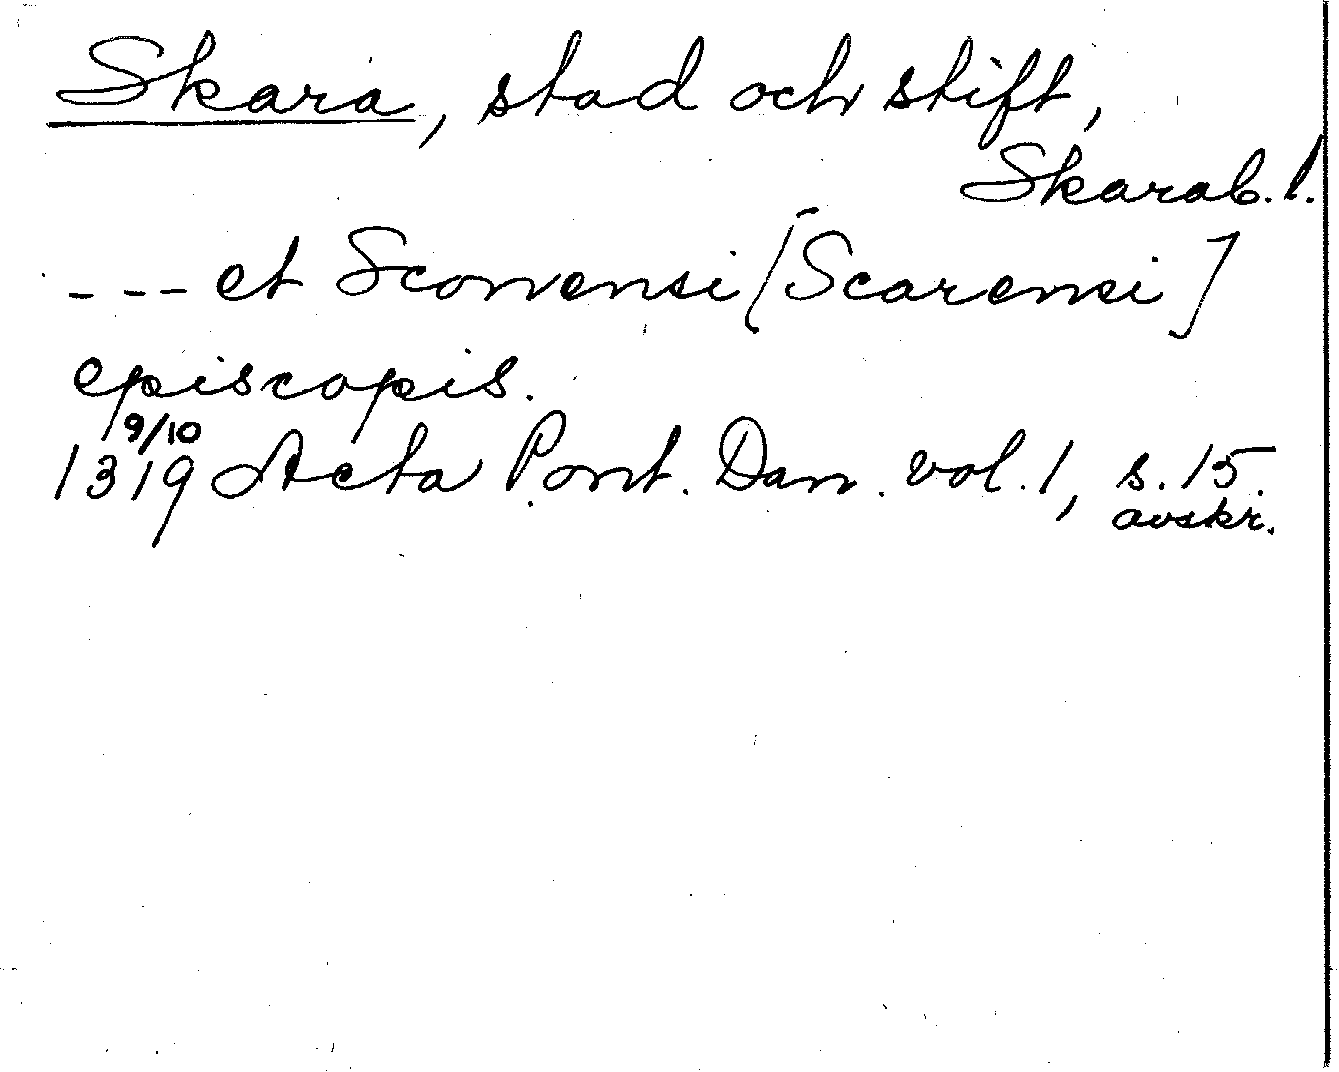 Skara, stad och stift,
Skarab. l.
--- et Sconensi [Scarensi]
episcopis.
9/10
1319 Acta Pont. Dan. vol. 1, s. 15.
avskr.